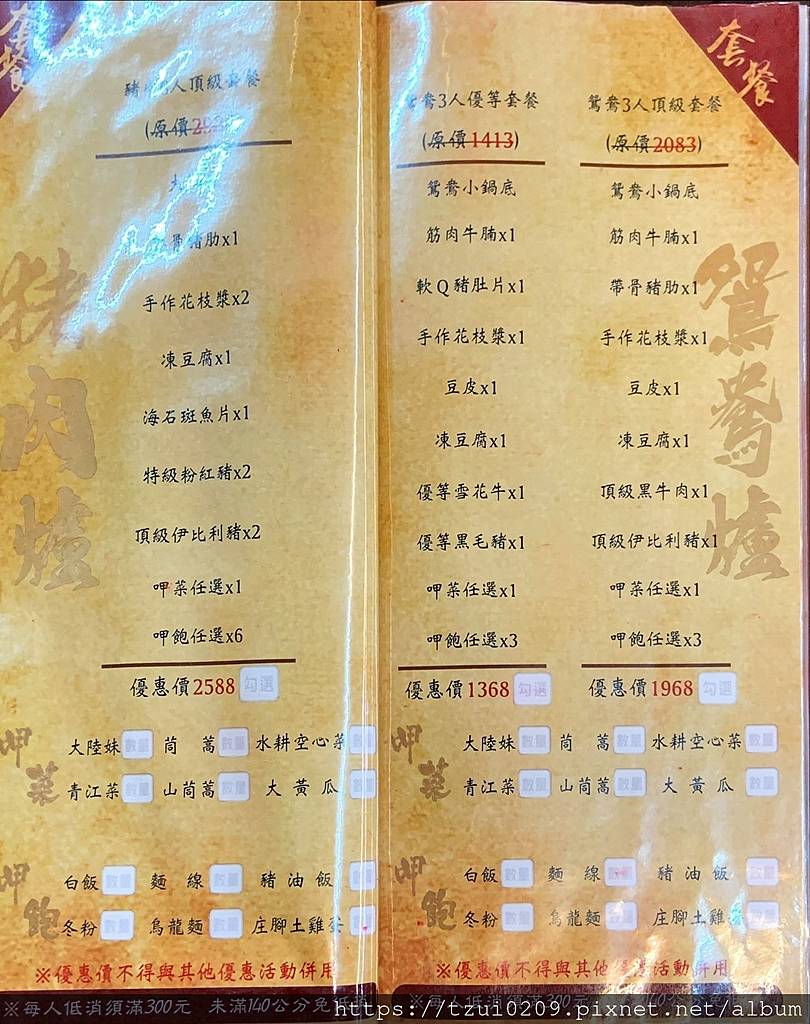 套餐
頂級套餐
(原價
骨豬肋x1
手作花枝漿x2
凍豆腐x1
海石斑魚片x1
特級粉紅豬x2
頂級伊比利豬x2
呷菜任選x1
呷飽任選x6
優惠價2588 勾選
豬肉爐
呷菜
大陸妹 數量 茼蒿 數量 水耕空心菜
青江菜 數量 山茼蒿 數量 大黃瓜
呷飽
白飯 數量 麵線 數量 豬油飯
冬粉 數量 烏龍麵 數量 庄腳土雞蛋
※優惠價不得與其他優惠活動併用
※每人低消須滿300元 未滿140公分免低消
套餐
鴛鴦3人優等套餐
(原價1413)
鴛鴦小鍋底
筋肉牛腩x1
軟Q豬肚片x1
手作花枝漿x1
豆皮x1
凍豆腐x1
優等雪花牛x1
優等黑毛豬x1
呷菜任選x1
呷飽任選x3
優惠價1368 勾選
鴛鴦3人頂級套餐
(原價2083)
鴛鴦小鍋底
筋肉牛腩x1
帶骨豬肋x1
手作花枝漿x1
豆皮x1
凍豆腐x1
頂級黑牛肉x1
頂級伊比利豬x1
呷菜任選x1
呷飽任選x3
優惠價1968 勾選
鴛鴦爐
呷菜
大陸妹 數量 茼蒿 數量 水耕空心菜 數量
青江菜 數量 山茼蒿 數量 大黃瓜 數量
呷飽
白飯 數量 麵線 豬油飯 數量
冬粉 數量 烏龍麵 數量 庄腳土雞蛋
※優惠價不得與其他優惠活動併用
https://tzui0209.pixnet.net/album